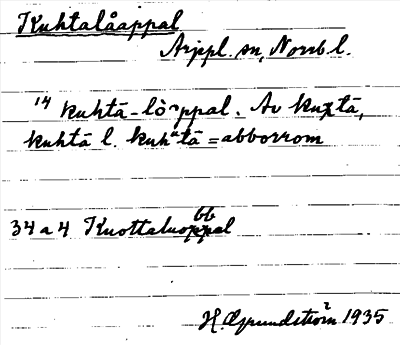 Kuhtalåappal
Arjepl. sn, Norrb l.
14 kuhtā-lò̬ppal. Av kuχtā,
kuhtā l. kuhᵃtā = abborrom
bb
34 a 4 Kuottaluoppal
H. Grundström 1935